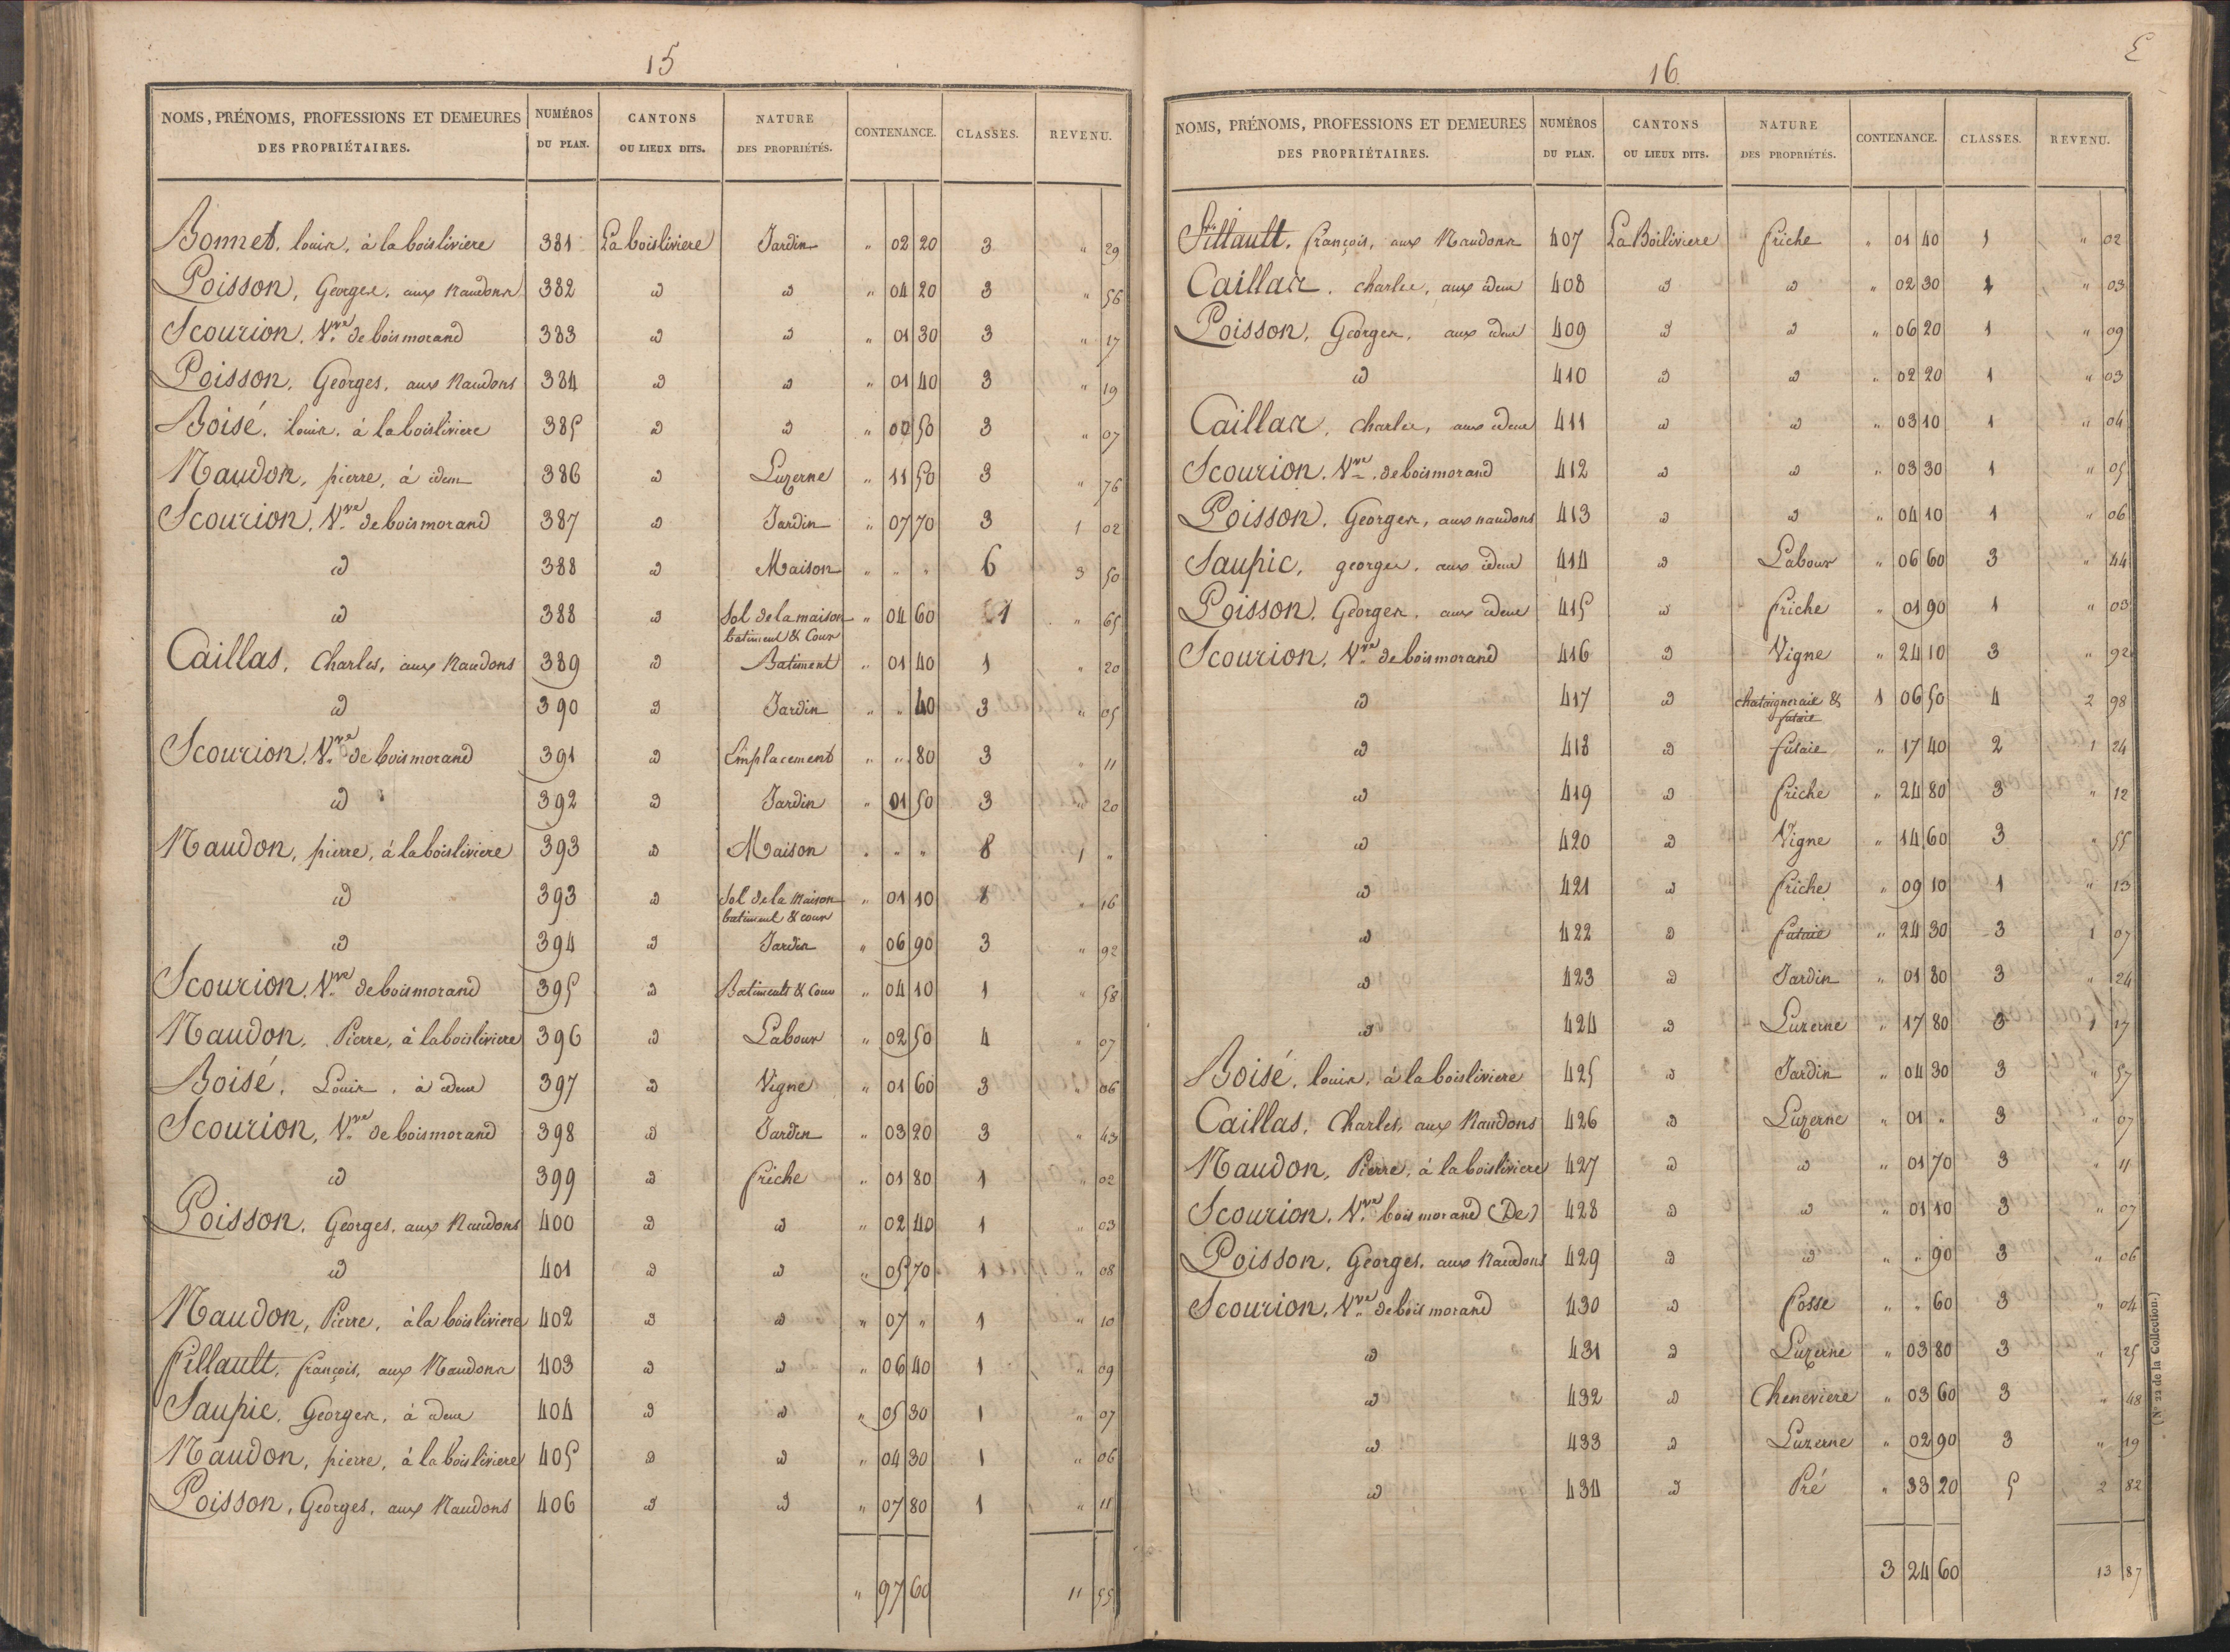 15
NOMS, PRÉNOMS, PROFESSIONS ET DEMEURES DES PROPRIÉTAIRES. NUMÉROS DU PLAN. CANTONS OU LIEUX DITS. NATURE DES PROPRIÉTÉS. CONTENANCE. CLASSES. REVENU.
Bonnet, louis, à la boisliviere 381 La boisliviere Jardin " 02 20 3 " 29
Poisson, Georges, aux Naudons 382 id id " 04 20 3 " 56
Scourion, Vve de boismorand 383 id id " 01 30 3 " 17
Poisson, Georges, aux Naudons 384 id id " 01 40 3 " 19
Boisé, louis, à la boisliviere 385 id id " 00 50 3 " 07
Naudon, pierre, à idem 386 id Luzerne " 11 50 3 " 76
Scourion, Vve de boismorand 387 id Jardin " 07 70 3 1 02
id 388 id Maison " " " 6 3 50
id 388 id Sol de la maison " 04 60 1 " 65
batiment & Cour
Caillas, Charles, aux Naudons 389 id Batiment " 01 40 1 " 20
id 390 id Jardin " " 40 3 " 05
Scourion, Vve de boismorand 391 id Emplacement " " 80 3 " 11
id 392 id Jardin " 01 50 3 " 20
Naudon, pierre, à la boisliviere 393 id Maison " " " 8 1 "
id 393 id Sol de la Maison " 01 10 " 16
batiment & cour
id 394 id Jardin " 06 90 3 " 92
Scourion, Vve de boismorand 395 id Batiments & Cour " 04 10 1 " 58
Naudon, Pierre, à la boisliviere 396 id Labour " 02 50 4 " 07
Boisé, Louis, à idem 397 id Vigne " 01 60 3 " 06
Scourion, Vve de boismorand 398 id Jardin " 03 20 3 " 43
id 399 id friche " 01 80 1 " 02
Poisson, Georges, aux Naudons 400 id id " 02 40 1 " 03
id 401 id id " 05 70 1 " 08
Naudon, Pierre, à la boisliviere 402 id id " 07 " 1 " 10
fillault, françois, aux Naudons 403 id id " 06 40 1 " 09
Saupic, Georges, à idem 404 id id " 05 30 1 " 07
Naudon, pierre, à la boisliviere 405 id id " 04 30 1 " 06
Poisson, Georges, aux Naudons 406 id id " 07 80 1 " 11
" 97 60 11 55
16
E
NOMS, PRÉNOMS, PROFESSIONS ET DEMEURES DES PROPRIÉTAIRES. NUMÉROS DU PLAN. CANTONS OU LIEUX DITS. NATURE DES PROPRIÉTÉS. CONTENANCE. CLASSES. REVENU.
fillault, françois, aux Naudons 407 La Boiliviere friche " 01 40 1 " 02
Caillas, charles, aux idem 408 id id " 02 30 1 " 03
Poisson, Georges, aux idem 409 id id " 06 20 1 " 09
id 410 id id " 02 20 1 " 03
Caillas, charles, aux idem 411 id id " 03 10 1 " 04
Scourion, Vve de boismorand 412 id id " 03 30 1 " 05
Poisson, Georges, aux naudons 413 id id " 04 10 1 " 06
Saupic, georges, aux idem 414 id Labour " 06 60 3 " 44
Poisson, Georges, aux idem 415 id friche " 01 90 1 " 03
Scourion, Vve de boismorand 416 id Vigne " 24 10 3 " 92
id 417 id chataigneraie & 1 06 50 4 2 98
futaie
id 418 id futaie " 17 40 2 1 24
id 419 id friche " 24 80 3 " 12
id 420 id Vigne " 14 60 3 " 55
id 421 id friche " 09 10 1 " 13
id 422 id futaie " 24 30 3 1 07
id 423 id Jardin " 01 80 3 " 24
id 424 id Luzerne " 17 80 3 1 17
Boisé, louis, à la boisliviere 425 id Jardin " 04 30 3 " 57
Caillas, Charles, aux Naudons 426 id Luzerne " 01 " 3 " 07
Naudon, Pierre, à la boisliviere 427 id id " 01 70 3 " 11
Scourion, Vve bois morand (De) 428 id id " 01 10 3 " 07
Poisson, Georges, aux Naudons 429 id id " " 90 3 " 06
Scourion, Vve de bois morand 430 id fosse " " 60 3 " 04
id 431 id Luzerne " 03 80 3 " 25
id 432 id Cheneviere " 03 60 3 " 48
id 433 id Luzerne " 02 90 3 " 19
id 434 id Pré " 33 20 5 2 82
3 24 60 13 87
(N° 22 de la Collection.)